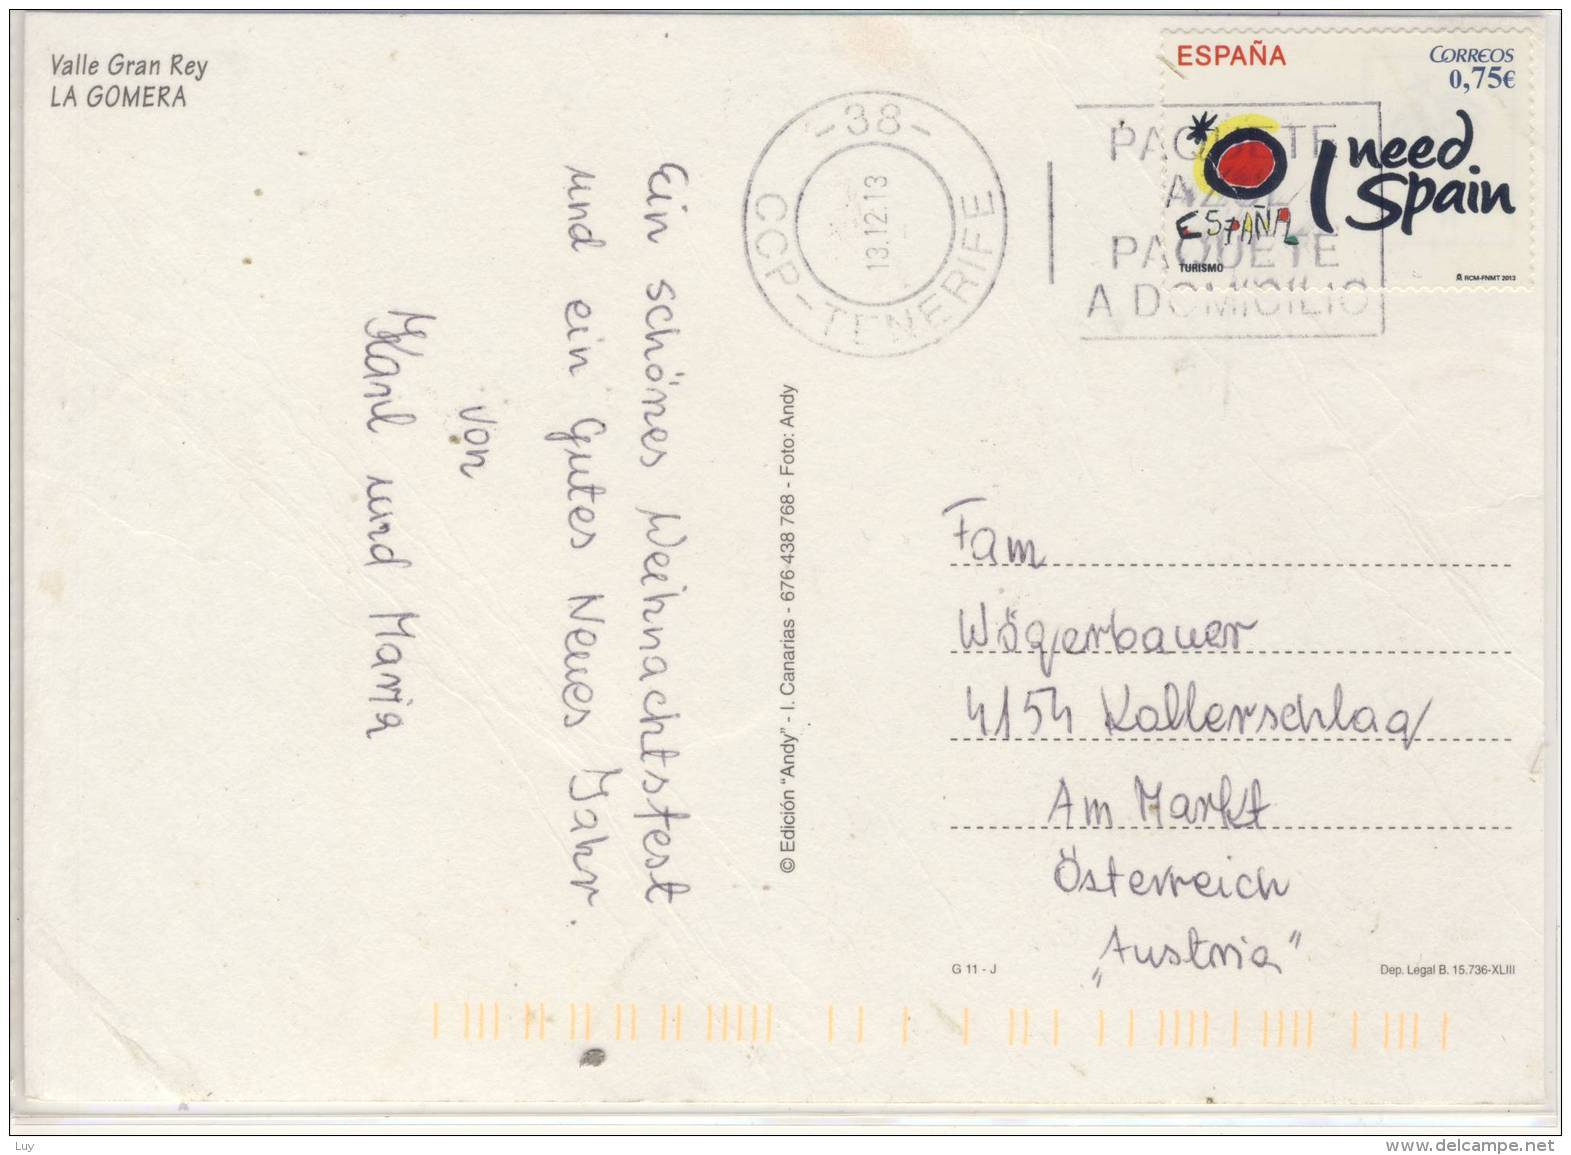 Valle Gran Rey
LA GOMERA
Ein schönes Weihnachtsfest
und ein Gutes Neues Jahr.
von
Karl und Maria
© Edición "Andy" - I. Canarias - 676 438 768 - Foto: Andy
-38-
CCP-TENERIFE
13.12.13
PAQUETE
AZUL
PAQUETE
A DOMICILIO
ESPAÑA
CORREOS
0,75€
I need
Spain
ESPAÑA
TURISMO
RCM-FNMT 2013
Fam
Wögerbauer
4154 Kollerschlag
Am Markt
Österreich
„Austria"
G 11 - J
Dep. Legal B. 15.736-XLIII
Luy
www.delcampe.net